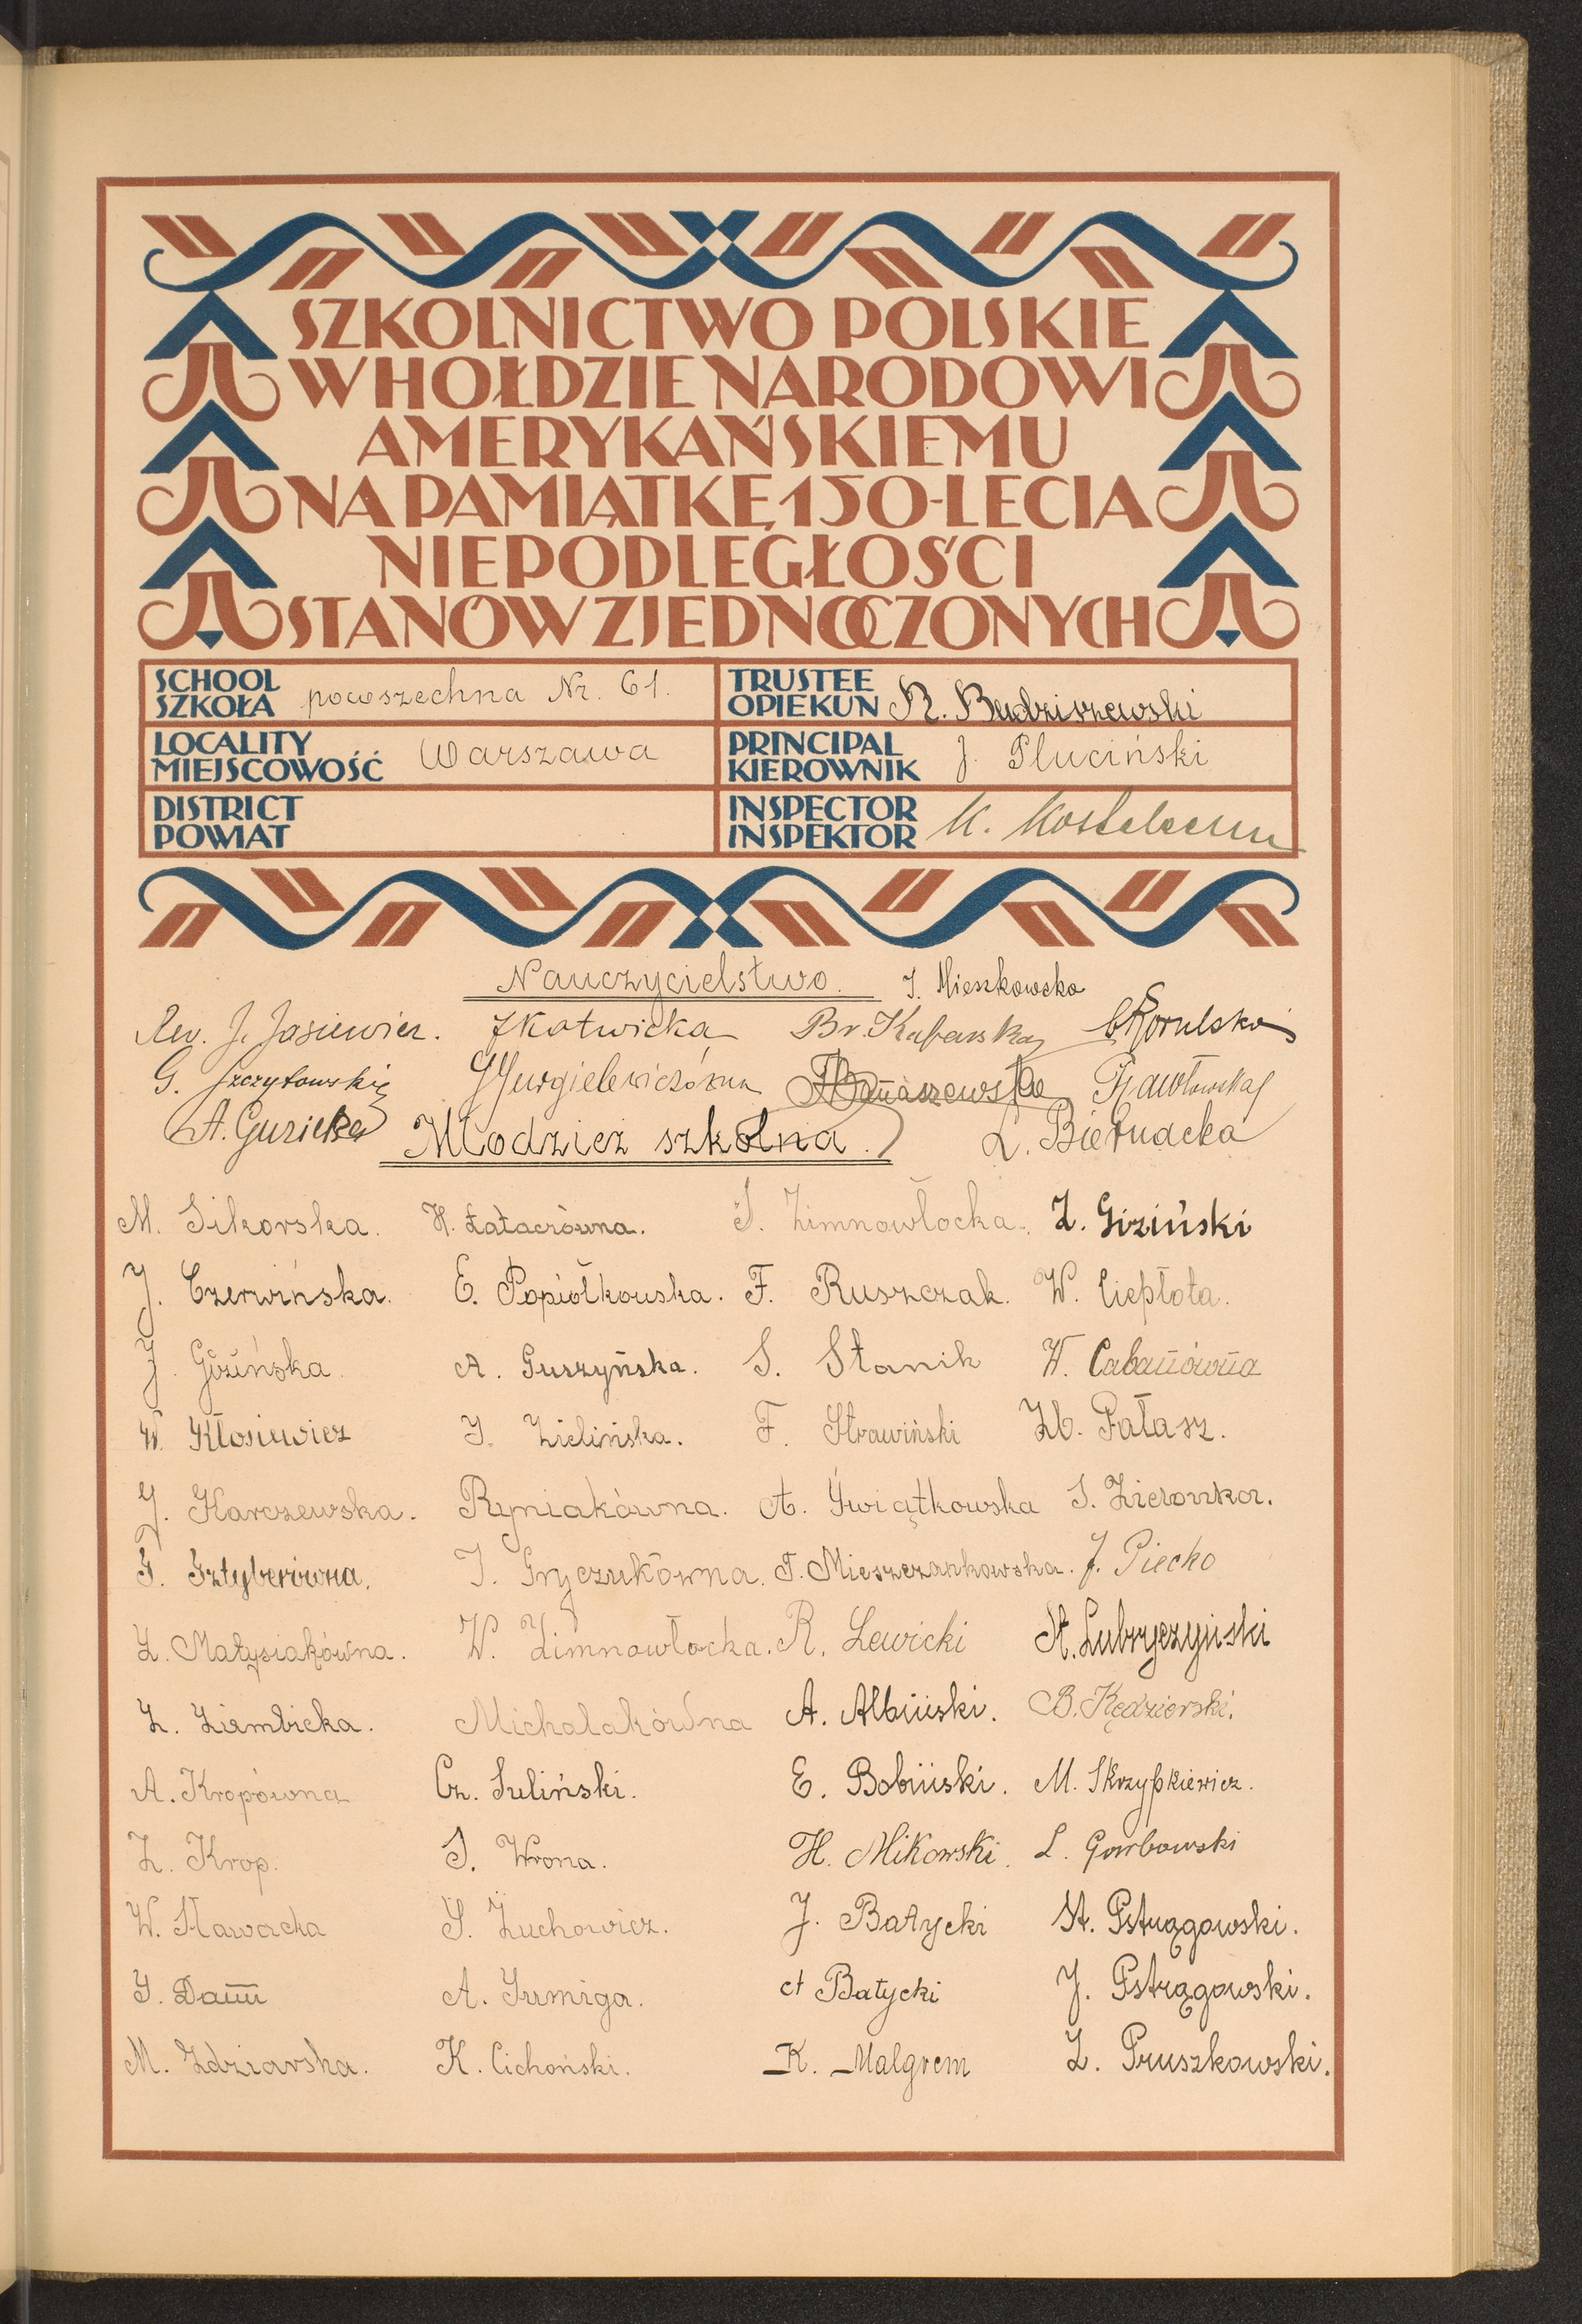 SZKOLNICTWO POLSKIE
W HOŁDZIE NARODOWI
AMERYKAŃSKIEMU
NA PAMIĄTKĘ 150-LECIA
NIEPODLEGŁOŚCI
STANÓW ZJEDNOCZONYCH
SCHOOL SZKOŁA powszechna Nr. 61. TRUSTEE OPIEKUN R. Budziszewski
LOCALITY MIEJSCOWOŚĆ Warszawa PRINCIPAL KIEROWNIK J. Pluciński
DISTRICT POWIAT INSPECTOR INSPEKTOR K.
Nauczycielstwo. J. Mieszkowska
Rev. J. Jasiewicz. Kotwicka Br. Kafarska
G. Jurgielewiczówna Banaszewska Pawłowska
A. Guzicka Młodzież szkolna. L. Biernacka
M. Sikorska. H. Łataczówna. S. Zimnowłocka. Z. Giziński
J. Czerwińska. E. Popiołkowska. F. Ruszczak. W. Ciepłota.
J. Gózińska. A. Guszyńska. S. Stanik W. Cabanówna
W. Kłosiewicz J. Zielińska. F. Strawiński Zb. Pałasz.
J. Karczewska. Ryniakówna. A. Świątkowska S. Zielonka.
F. Sztyberówna. J. Gryczukówna. T. Mieszczankowska. J. Piecko
Z. Małysiakówna. W. Zimnowłocka. R. Lewicki St. Lubryczyński
Z. Ziembicka. Michalakówna A. Albiński. B. Kędzierski.
A. Kropówna Cz. Suliński. E. Bobiński. M. Skrzypkiewicz.
Z. Krop. S. Wrona. H. Mikowski. L. Garbowski
W. Sławacka S. Żuchowicz. J. Batycki St. Pstrągowski.
J. Damm A. Szmiga. A Batycki J. Pstrągowski.
M. Zdziarska. K. Cichoński. K. Malgrem Z. Pruszkowski.